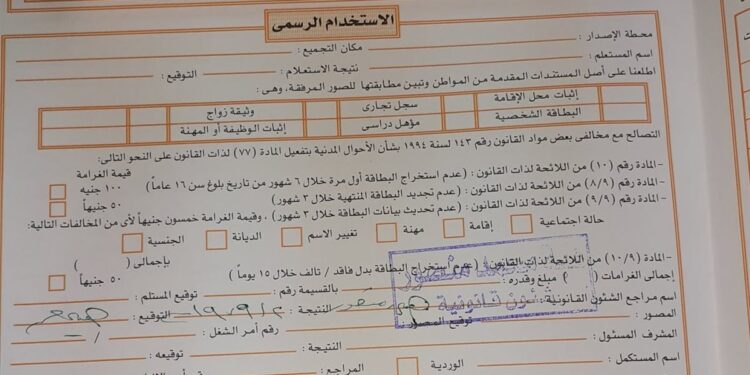 الاستخدام الرسمى
محطة الإصدار : مكان التجميع :
اسم المستعلم : نتيجة الاستعلام : التوقيع :
اطلعنا على أصل المستندات المقدمة من المواطن وتبين مطابقتها للصور المرفقة، وهى :
إثبات محل الإقامة سجل تجارى وثيقة زواج
البطاقة الشخصية مؤهل دراسى إثبات الوظيفة أو المهنة
التصالح مع مخالفى بعض مواد القانون رقم ١٤٣ لسنة ١٩٩٤ بشأن الأحوال المدنية بتفعيل المادة (٧٧) لذات القانون على النحو التالى:
قيمة الغرامة
-المادة رقم (١٠) من اللائحة لذات القانون : (عدم استخراج البطاقة أول مرة خلال ٦ شهور من تاريخ بلوغ سن ١٦ عاماً) ١٠٠ جنيه
-المادة رقم (٨/٩) من اللائحة لذات القانون : (عدم تجديد البطاقة المنتهية خلال ٣ شهور) ٥٠ جنيهاً
-المادة رقم (٩/٩) من اللائحة لذات القانون : (عدم تحديث بيانات البطاقة خلال ٣ شهور) ، وقيمة الغرامة خمسون جنيهاً لأى من المخالفات التالية:
حالة اجتماعية إقامة مهنة تغيير الاسم الديانة الجنسية
بإجمالى ( )
-المادة رقم (١٠/٩) من اللائحة لذات القانون : (عدم استخراج البطاقة بدل فاقد / تالف خلال ١٥ يوماً) ٥٠ جنيهاً
إجمالى الغرامات ( ) مبلغ وقدره : بالقسيمة رقم : توقيع المستلم :
اسم مراجع الشئون القانونية : النتيجة : التوقيع :
شئون قانونية
المصور : توقيع المصور رقم أمر الشغل :
المشرف المسئول : النتيجة : توقيعه :
اسم المستكمل : الوردية المراجع :